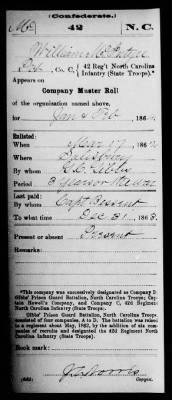 (Confederate.)
Mc 42 N.C.
William McGuire
Pvt, Co. C, 42 Reg't North Carolina
Infantry (State Troops).*
Appears on
Company Muster Roll
of the organization named above,
for Jan & Feb, 1864.
Enlisted:
When Mar 17, 1862
Where Salisbury
By G. C. Gibbs
Period 3 years or the war
Last paid:
By Capt. Bessent
To what time Dec 31, 1863.
Present or absent Present
Remarks:
*This company was successively designated as Company D,
Gibbs' Prison Guard Battalion, North Carolina Troops; Captain
Howell's Company, and Company C, 42d Regiment
North Carolina Infantry (State Troops).
Gibbs' Prison Guard Battalion, North Carolina Troops,
consisted of four companies, A to D. The battalion was raised
to a regiment about May, 1862, by the addition of six companies
of recruits and designated the 42d Regiment North
Carolina Infantry (State Troops).
Book mark:
(642) Copyist.